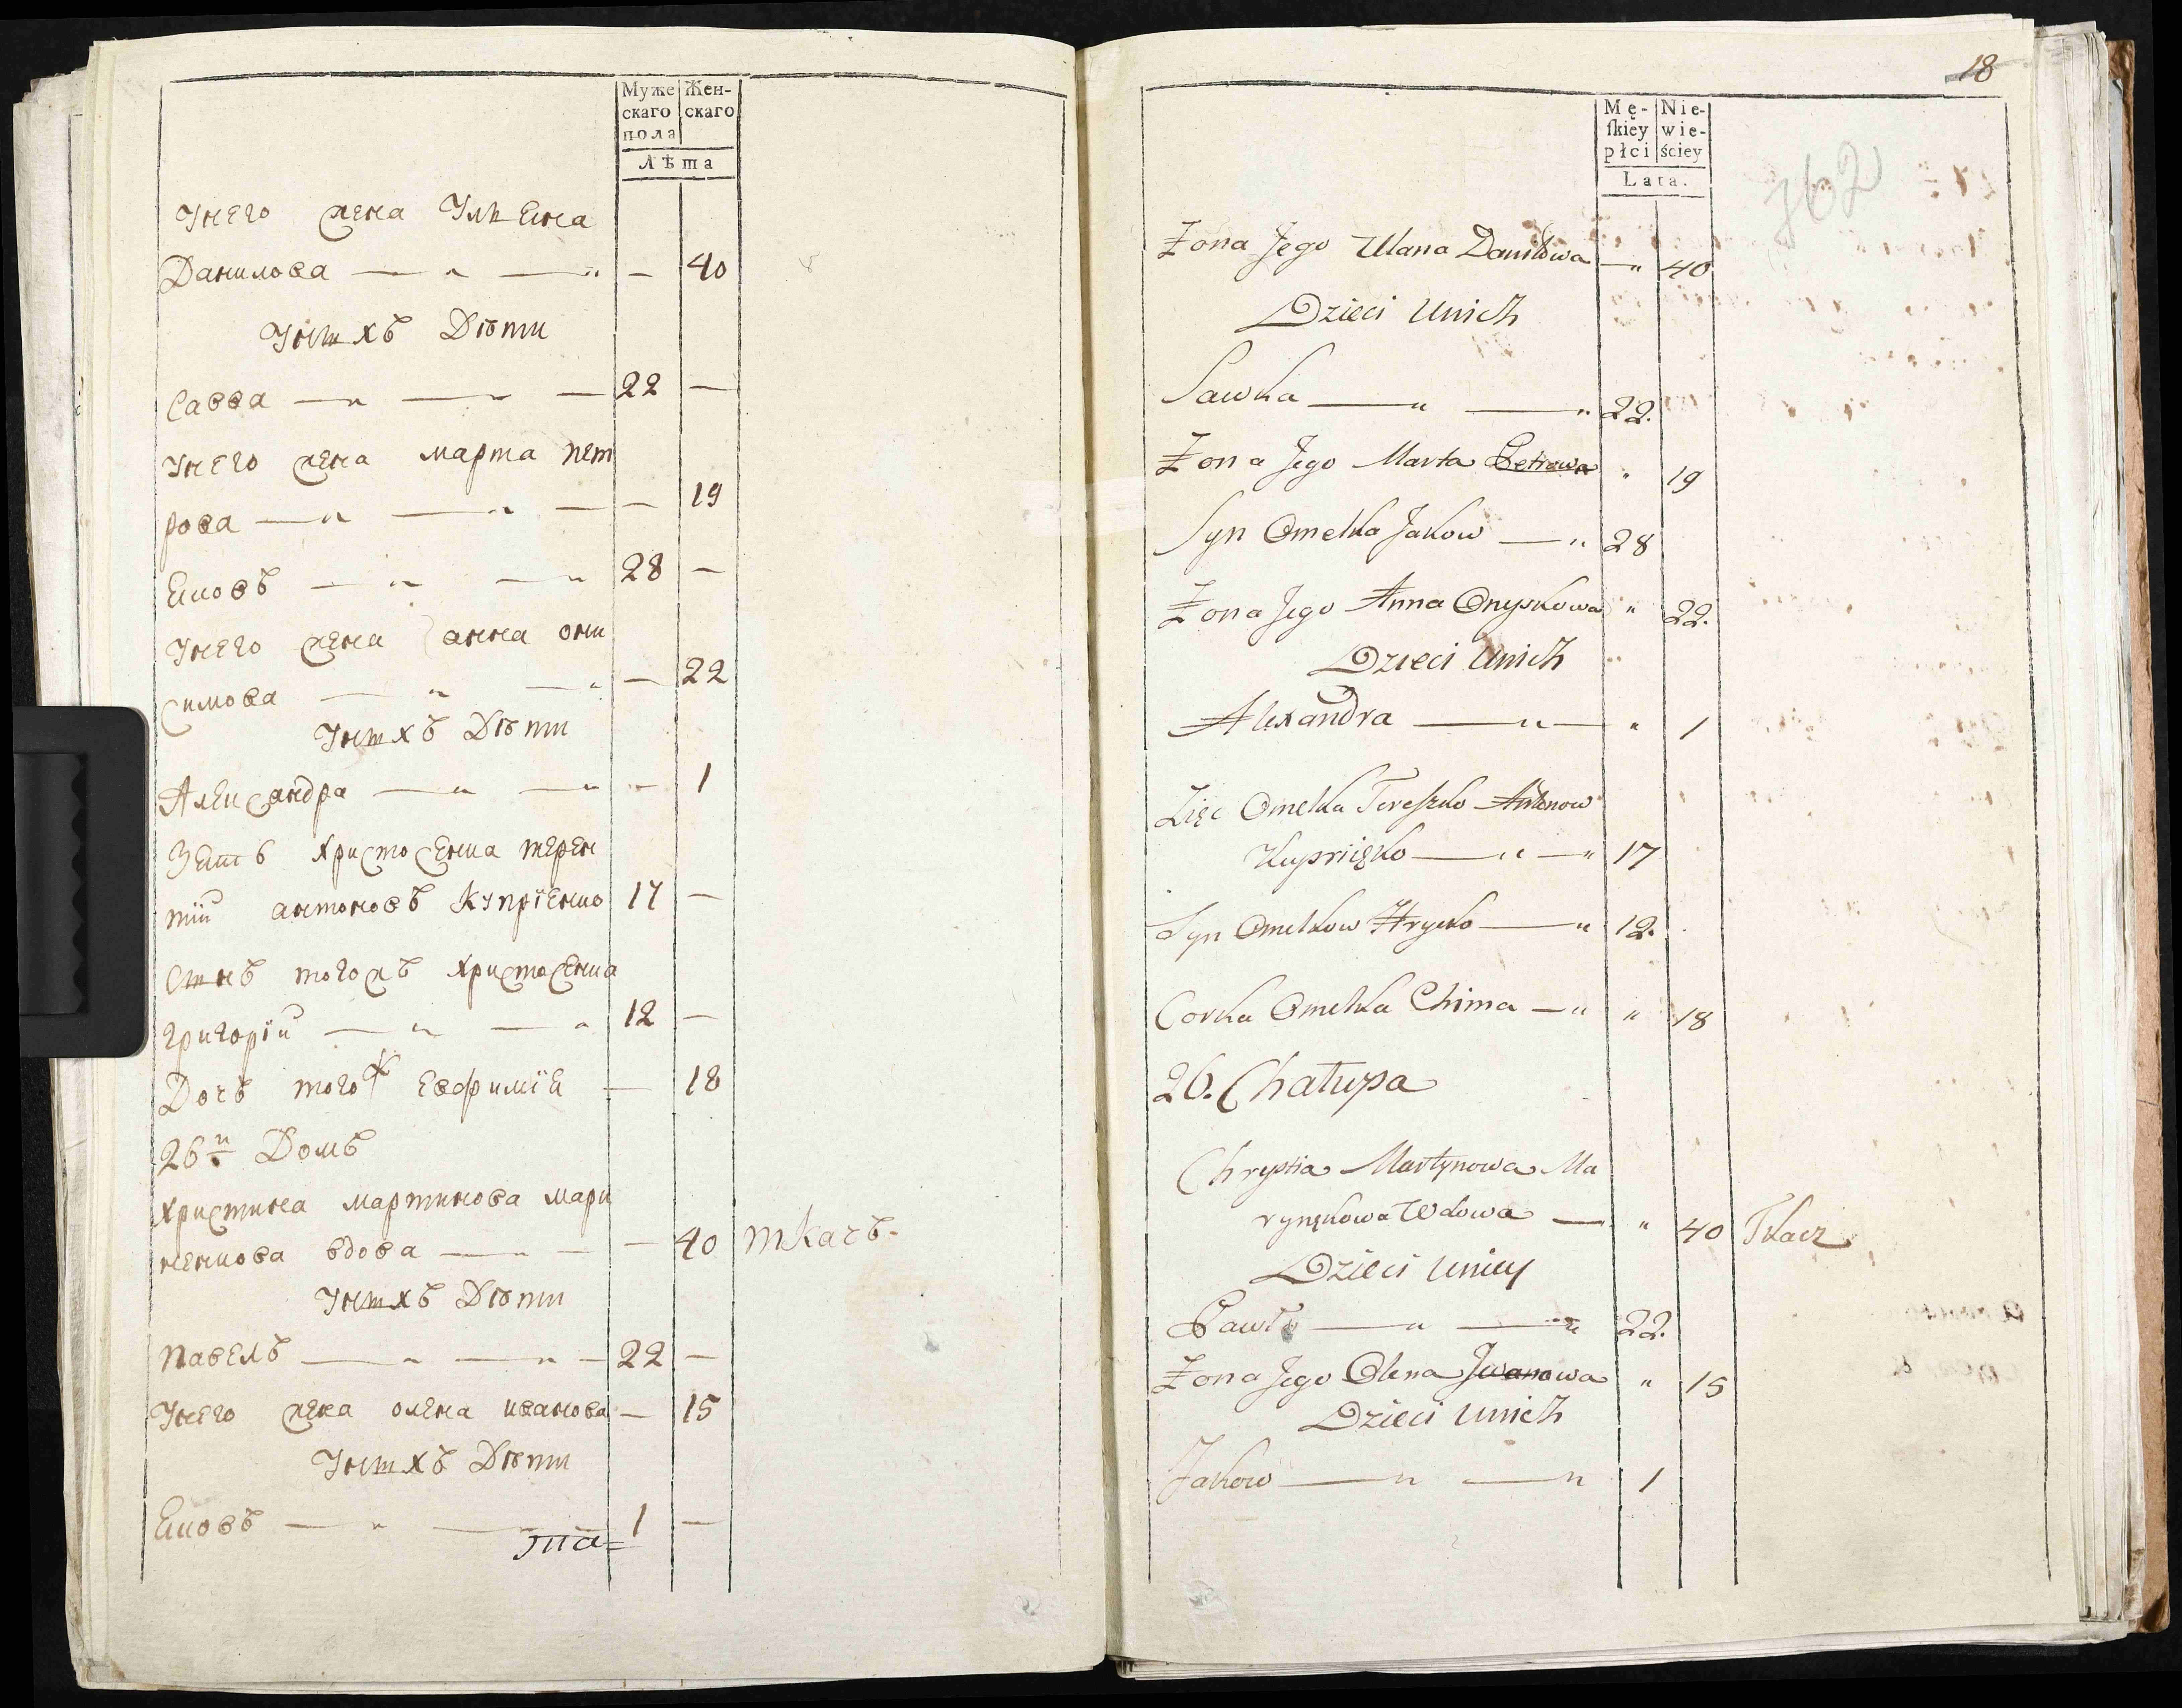 Муже Жен-
скаго скаго
пола
Лѣта
Унего жена Ульяна
Данилова — " — " — 40
Унихъ Дѣти
Савва — " — " — 22 —
Унего жена марта пет
рова — " — " — — 19
Яковъ — " — " 28 —
Унего жена анна они
симова — " — " — 22
Унихъ Дѣти
Александра — " — " — 1
Зять христосенка терен
тій антоновъ Купріенко 17 —
Сынъ тогожъ христосенка
григорій — " — " 12 —
Дочь того ж евфимія — 18
26й Домъ
христина мартинова мари
ненкова вдова — " — — 40 ткачъ.
Унихъ Дѣти
павелъ — " — " — 22 —
Унего жена олена иванова — 15
Унихъ Дѣти
Яковъ — " — 1 —
18
Mę- Nie-
ſkiey wie-
płci ściey
Lata.
762
Żona Jego Ulana Daniłowa — " 40
Dzieci Unich
Sawka — " — " 22.
Żona Jego Marta Petrowa " 19
Syn Omelka Jakow — " 28
Żona Jego Anna Onyskowa " 22.
Dzieci Unich
Alexandra — " — " 1
Zięc Omelka Tereszko Antonow
Kupriięko — " — " 17
Syn Omelkow Hrycko — " 12.
Corka Omelka Chima — " " 18
26. Chałupa
Chrystia Martynowa Ma
rynękowa Wdowa — " 40 Tkacz
Dzieci Uniey
Pawło — " — " 22.
Żona Jego Olena Jwanowa " 15
Dzieci Unich
Jakow — " — " 1